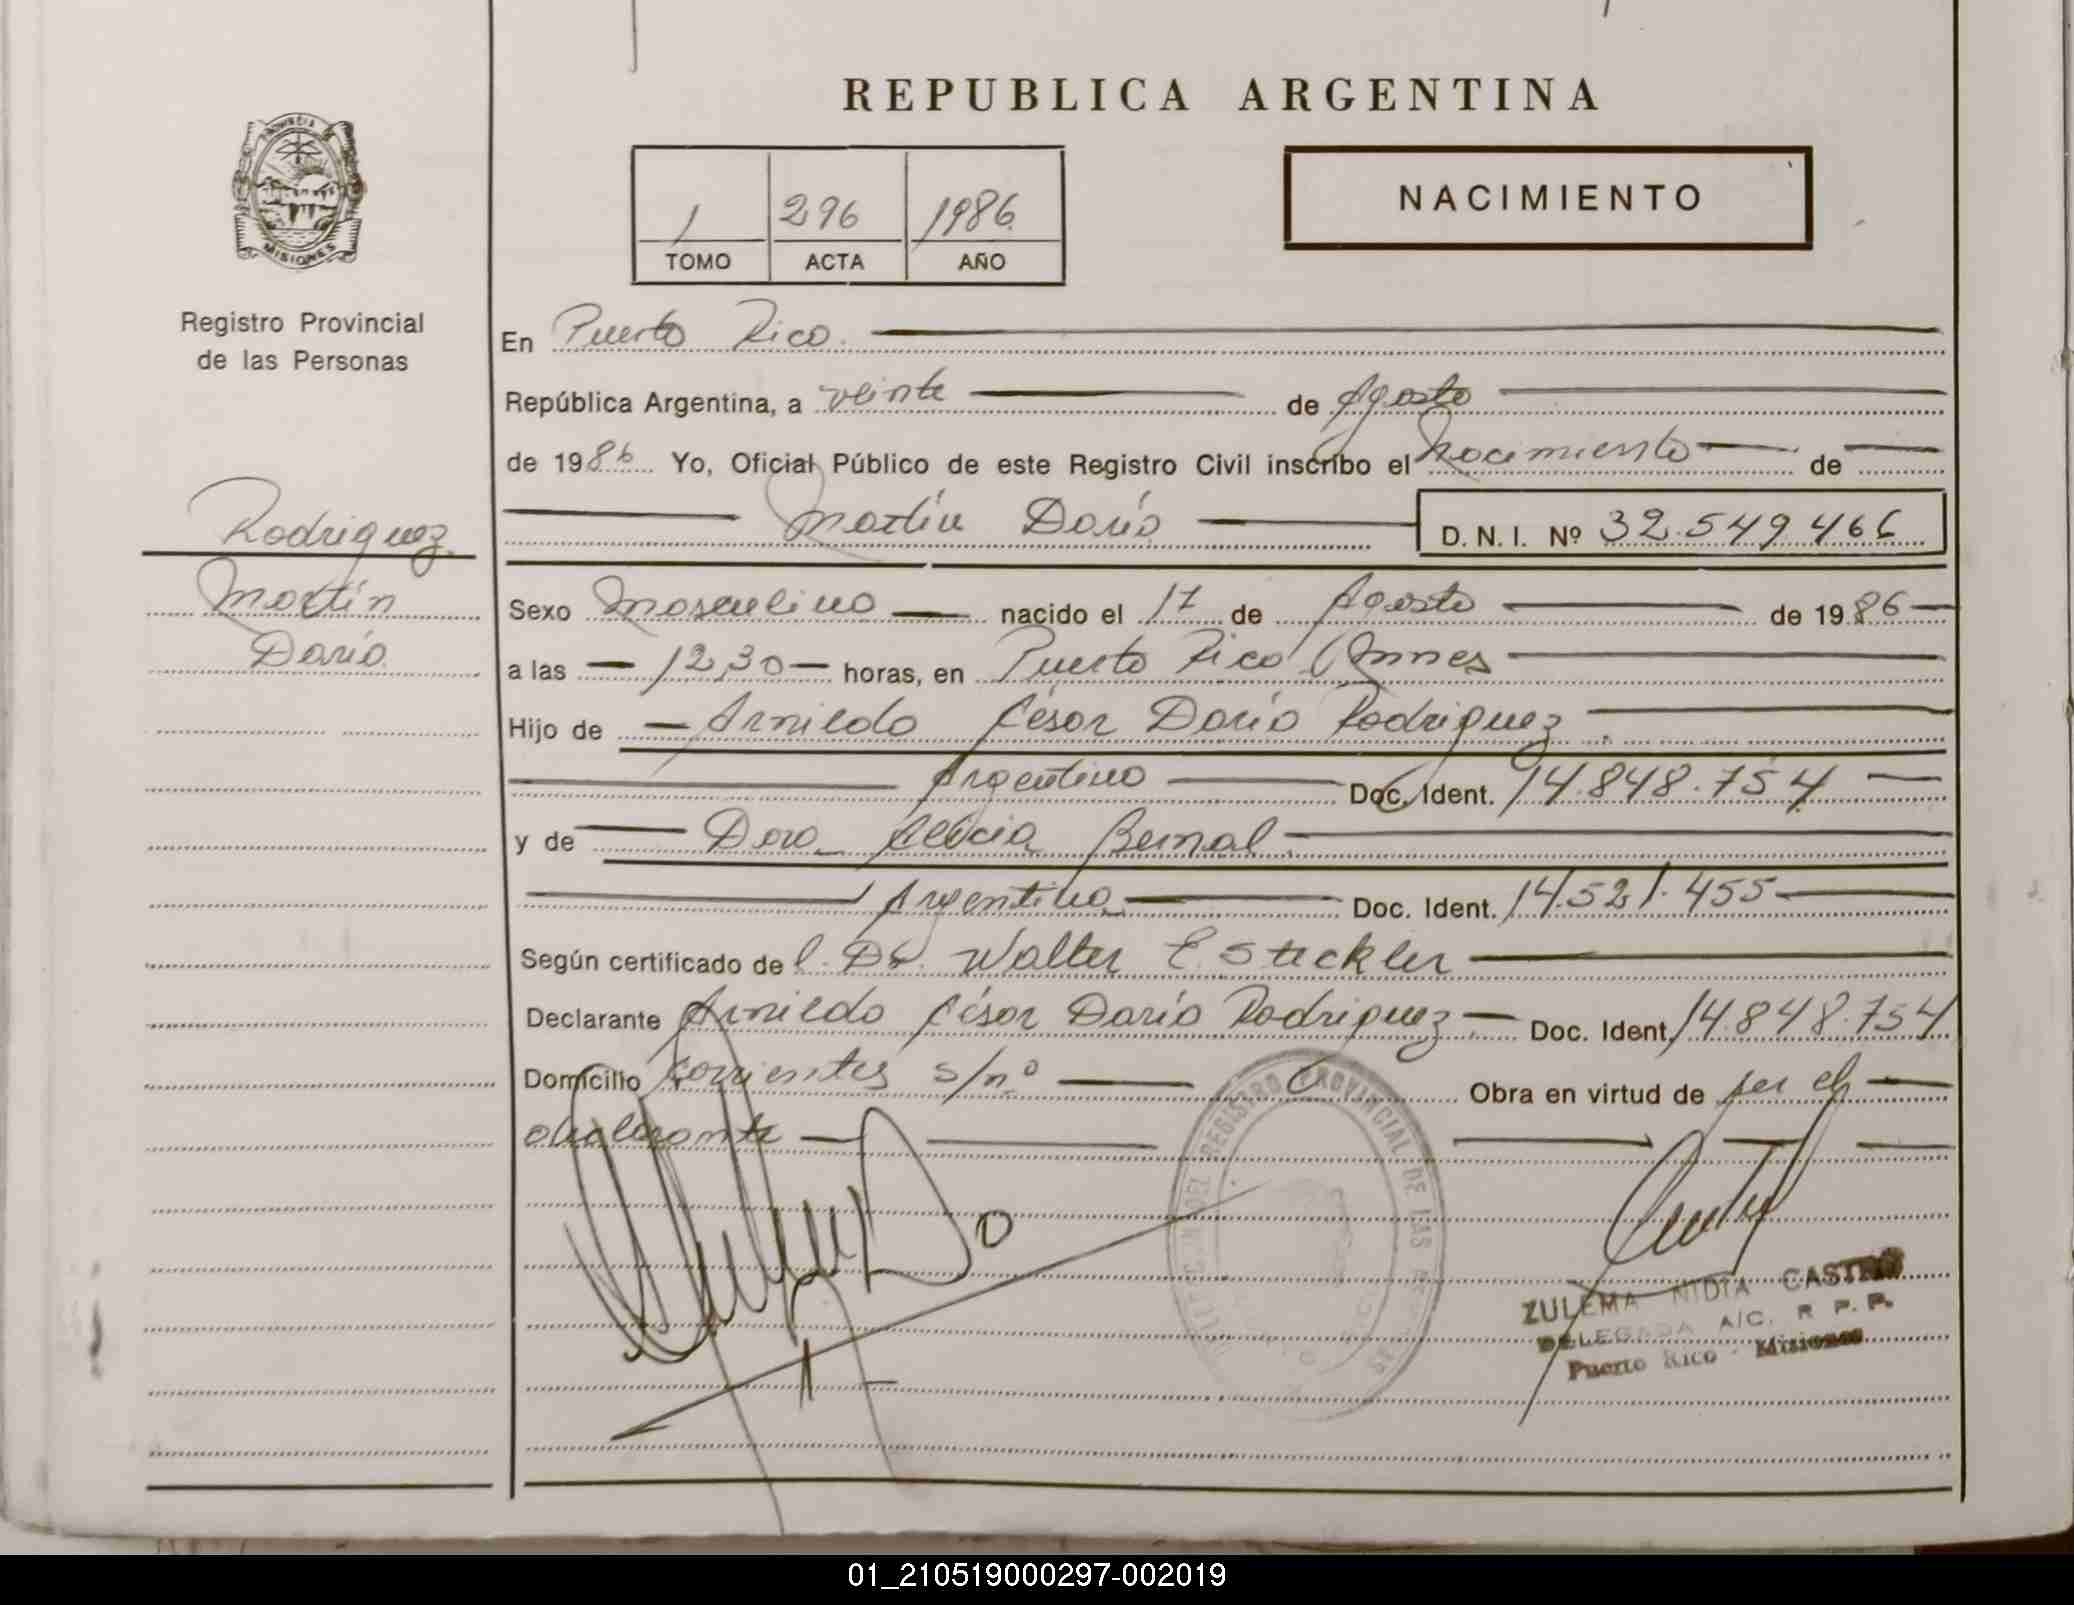 REPUBLICA ARGENTINA
PROVINCIA
MISIONES
Registro Provincial
de las Personas
1 296 1986
TOMO ACTA AÑO
NACIMIENTO
En Puerto Rico.
República Argentina, a veinte de Agosto
de 1986 Yo, Oficial Público de este Registro Civil inscribo el Nacimiento de
Martín Darío D. N. I. Nº 32.549.466
Rodriguez
Martín
Darío
Sexo Masculino nacido el 17 de Agosto de 1986
a las 12,30 horas, en Puerto Rico Mnes
Hijo de Arnildo César Darío Rodriguez
Argentino Doc. Ident. 14.848.754
y de Dora Alicia Bernal
Argentina Doc. Ident. 14.521.455
Según certificado de l. Dr. Walter E. Steckler
Declarante Arnildo César Darío Rodriguez Doc. Ident. 14.848.754
Domicilio Corrientes s/nº Obra en virtud de ser el
declarante
DEL REGISTRO PROVINCIAL DE LAS
ZULEMA NIDIA CASTRO
DELEGADA A/C. R. P. P.
Puerto Rico - Misiones
01_210519000297-002019